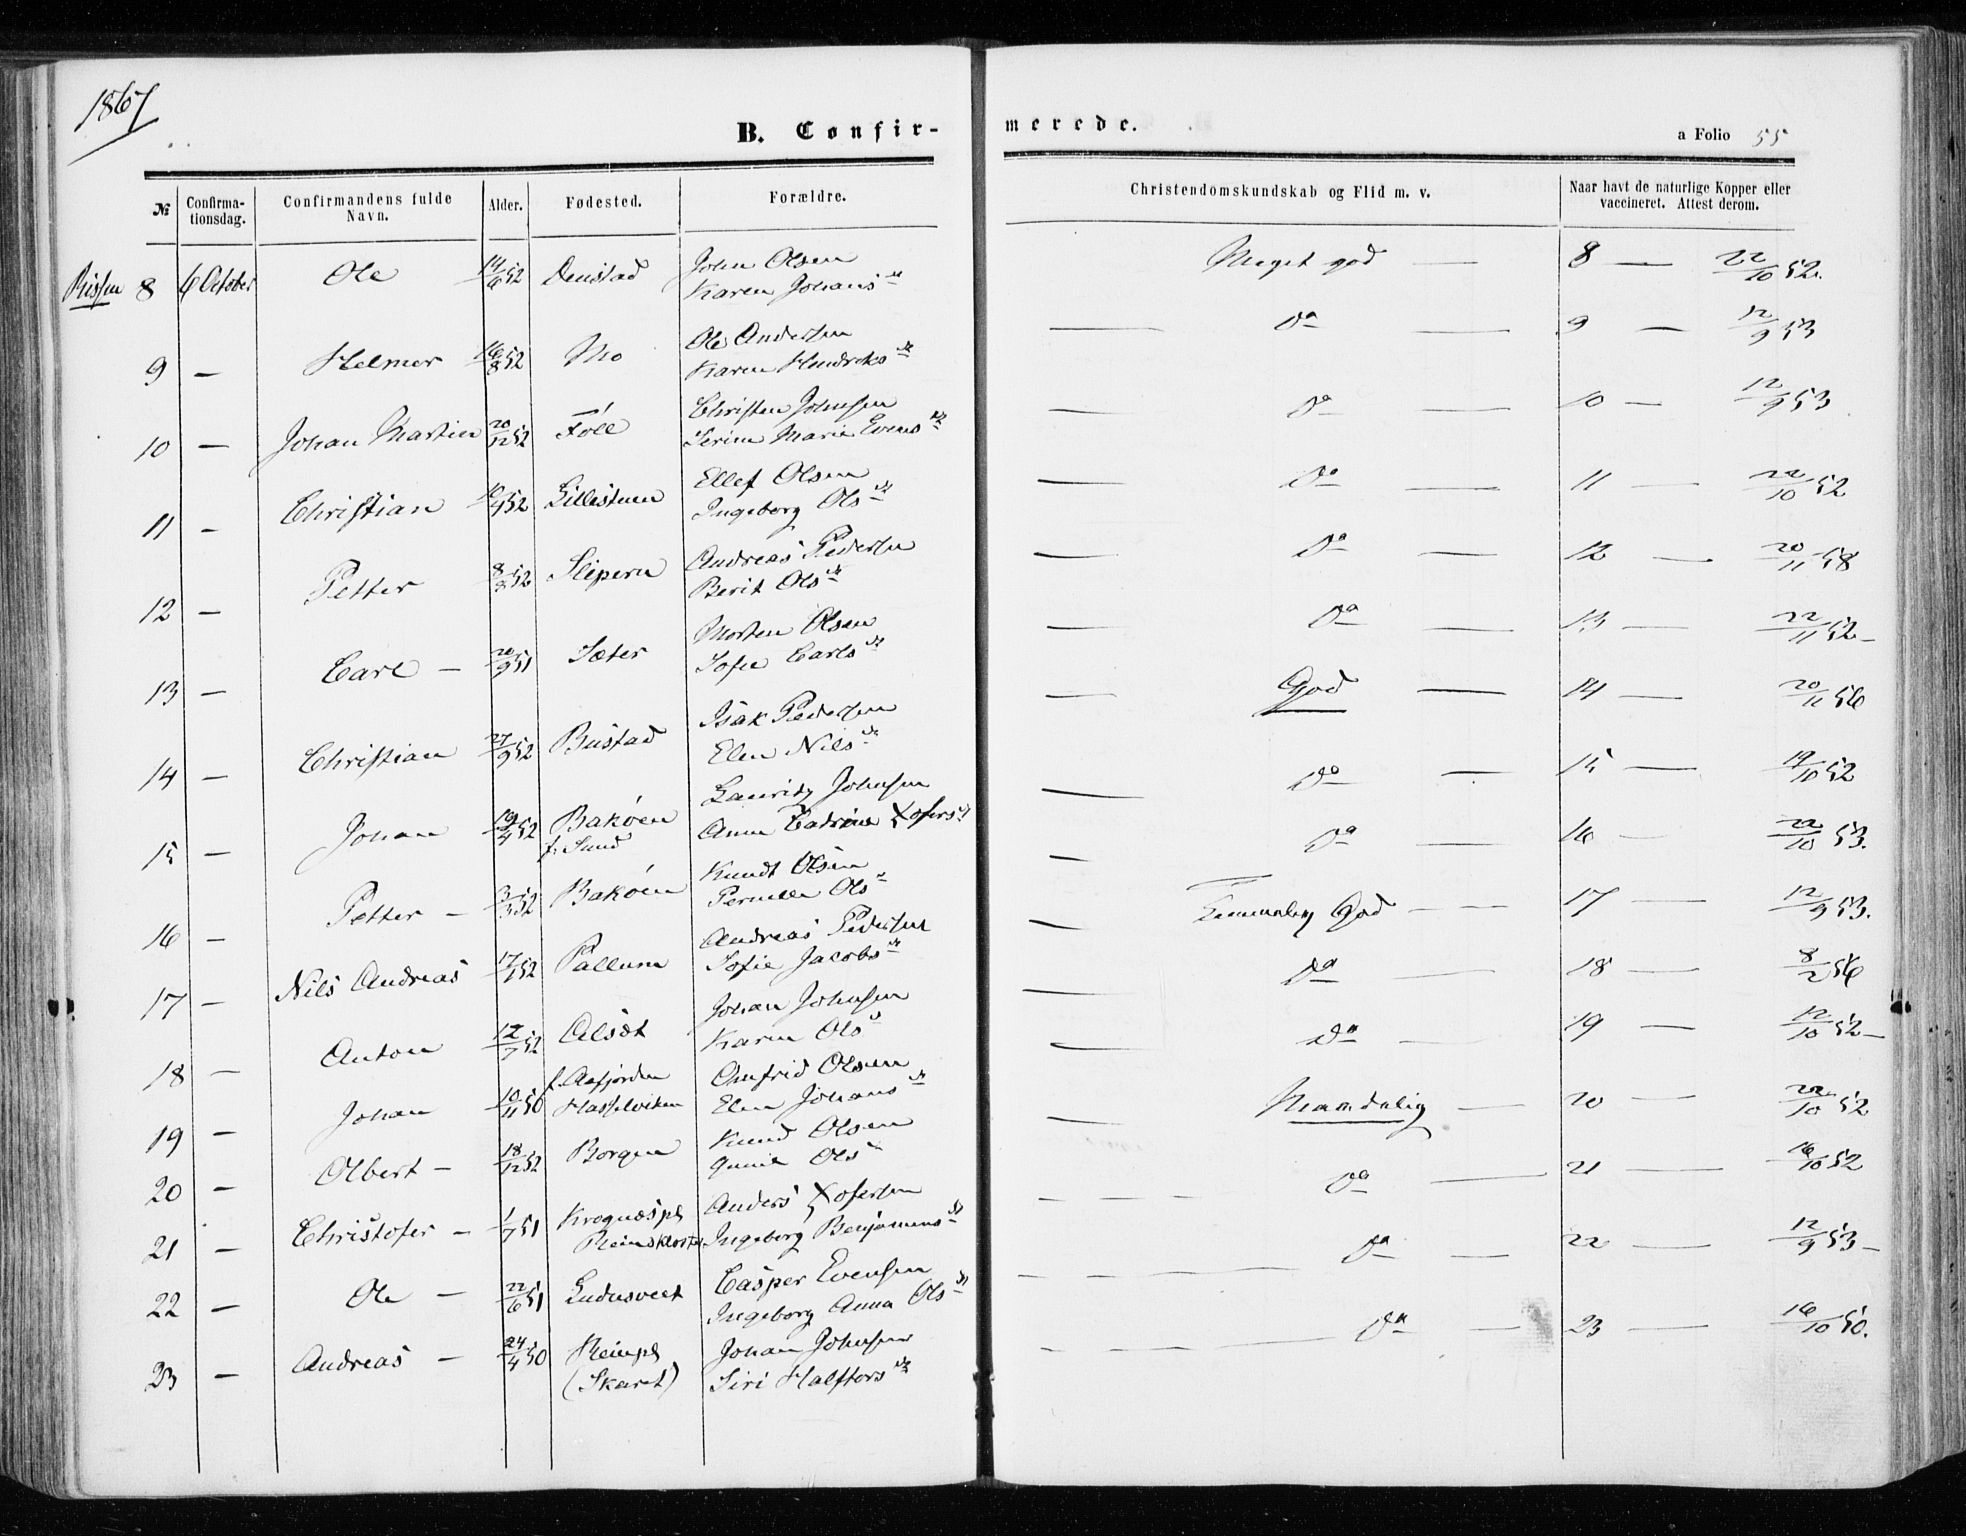 1867
B. Confir-
merede.
a Folio 55
№
Confirma-
tionsdag.
Confirmandens fulde
Navn.
Alder.
Fødested.
Forældre.
Christendomskundskab og Flid m. v.
Naar havt de naturlige Kopper eller
vaccineret. Attest derom.
Rissen 8 6 October Ole 14/6 52 Denstad John Olsen
Karen Johans
Meget god — 8 — 22/10 52.
9 — Helmer 16/8 52 Mo Ole Andersen
Karen Hendreks
Do — 9 — 12/9 53
10 — Johan Martin 20/12 52 Föll Christen Johnsen
Serine Marie Evens
Do — 10 — 12/9 53
11 — Christian 52 Ellef Olsen
Ingeborg Ols
Do — 11 — 22/10 52
12 — Petter 52 Slipern Andreas Pedersen
Berit Ols
Do — 12 — 20/11 58
13 — Carl — 20/9 51 Sæter Morten Olsen
Sofie Carls
Do — 13 — 22/11 52 —
14 — Christian 27/9 52 Bustad Isak Pedersen
Elen Nils
God — 14 — 20/11 56
15 — Johan 19/4 52 Bakøen
f. Sund
Lauritz Johnsen
Anne Cadrine Xofers
Do — 15 — 19/10 52
16 — Petter — 3/3 52 Bakøen Knudt Olsen
Pernille Ols
Do — 16 — 22/10 53.
17 — Nils Andreas 17/1 52 Pallum Andreas Pedersen
Sofie Jacobs
Temmelig God — 17 — 12/9 53.
18 — Anton 12/7 52 Alsæt Johan Johnsen
Karen Ols
Do — 18 — 8/2 56
19 — Johan 10/11 50 f. Aafjorden
Hasselviken
Olsen
Elen Johans
Do — 19 — 12/10 52 —
20 — Olbert — 18/12 52 Borgen Knud Olsen
Ols
Maadelig — 20 — 22/10 52
21 — Christofer — 1/7 51 Krognæspl
Reinskloster
Anders Xofersen
Ingeborg Benjamins
Do — 21 — 16/10 52
22 — Ole — 22/6 51 Casper Evensen
Ingeborg Anna Ols
Do — 22 — 12/9 53 —
23 — Andreas — 24/4 50 Reinspl
(Skaret)
Johan Johnsen
Siri Halftors
Do — 23 — 16/10 50.